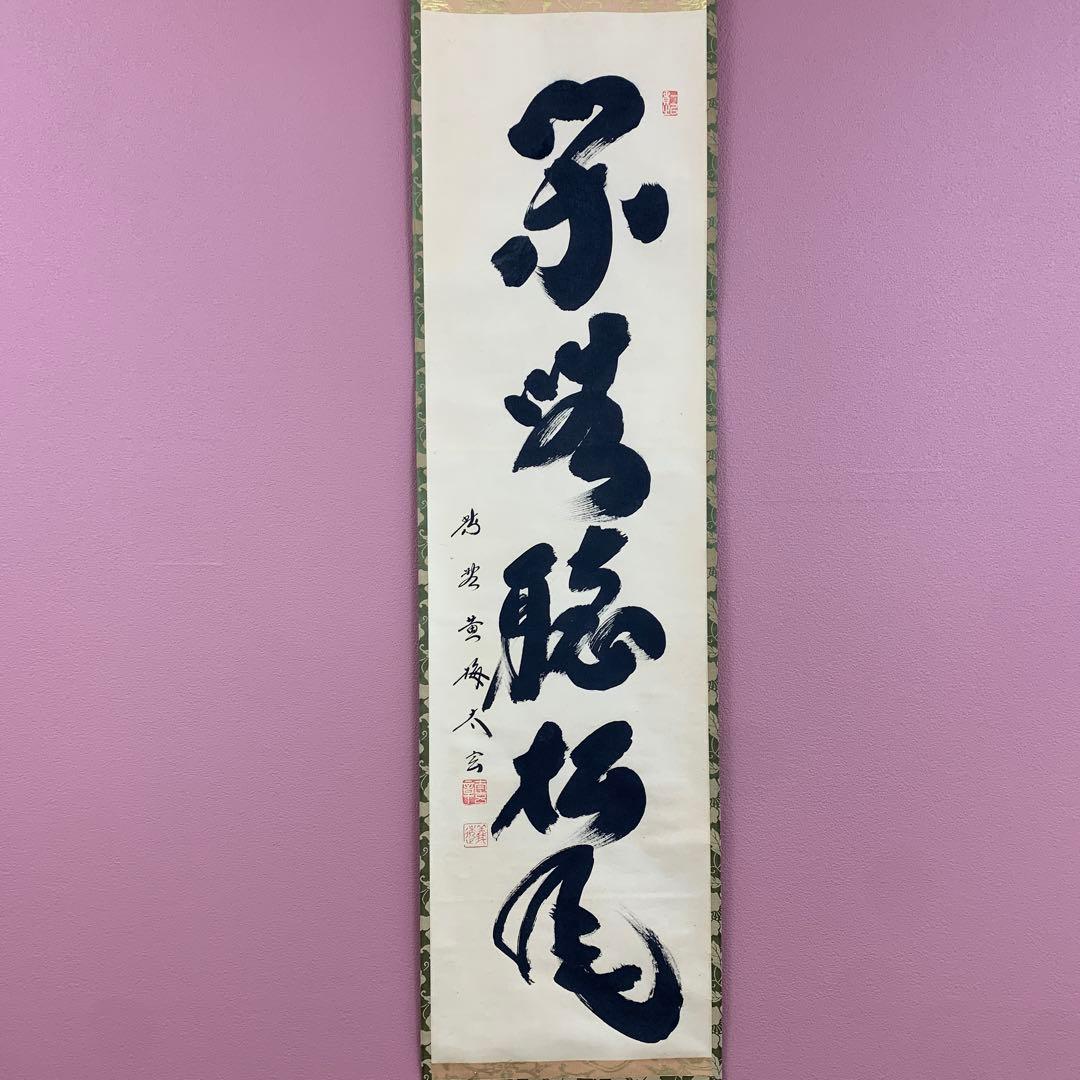 閑坐聴松風
紫野黄梅太玄